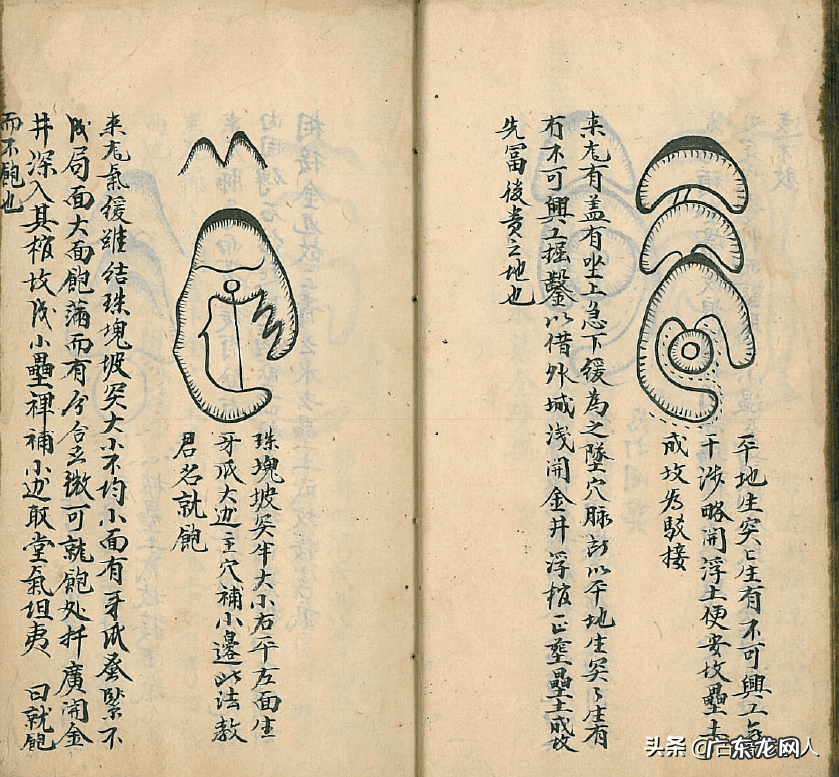 平地生突〻生有不可興工与
干涉略開浮土便安坟壘土
成坟为駁接
来尨有盖有坐上急下缓為之墜穴脉所以平地生突〻生有
有不可興工掘鑿以借外城浅開金井浮棺正壘壘土成坟
先冨後貴之地也
珠塊坡突牛大小右平左面生
牙爪大边主穴補小邉此法教
君名就飽
来尨氣缓雖结珠塊坡突大小不均小面有牙爪발緊不
成局面大面飽蒲而有分合之微可就飽处扦廣開金
井深入其棺坟成小壘裨補小边取堂氣坦夷 曰就飽
而不飽也
头条 @广东龙网人